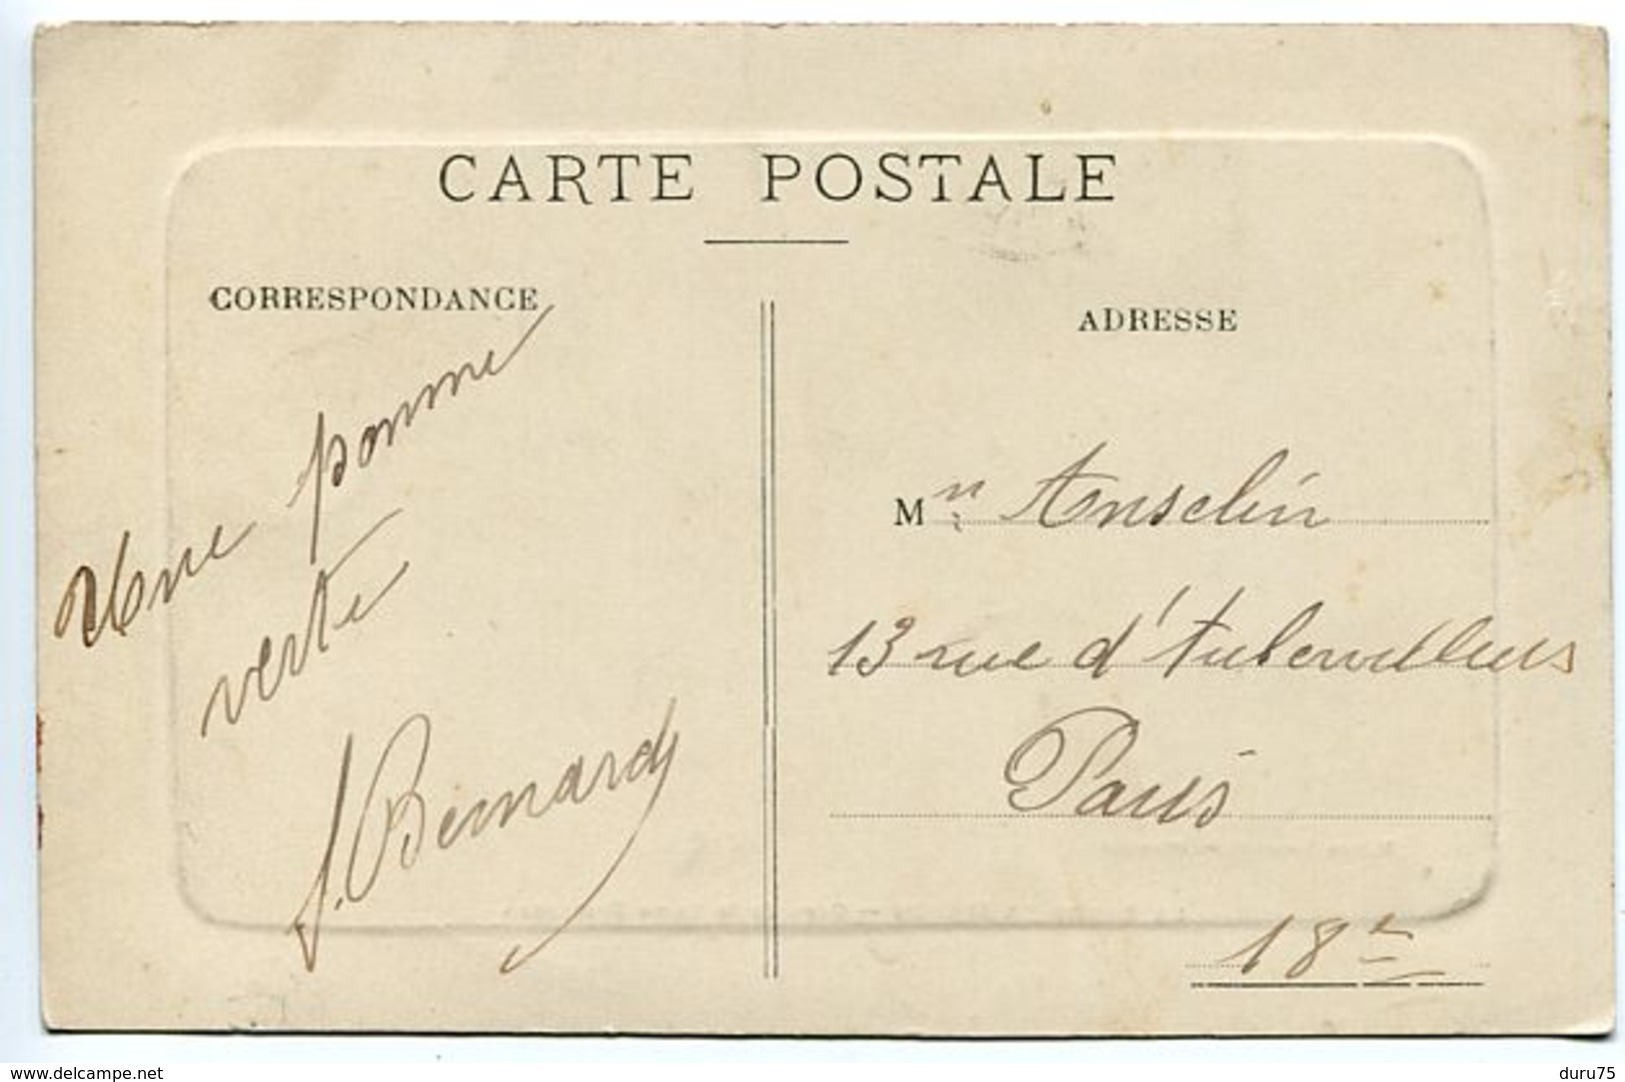 CARTE POSTALE
CORRESPONDANCE
Une pomme
verte
J. Bernard
ADRESSE
Mr Anselin
13 rue d'Aubervilliers
Paris
18e
www.delcampe.net
duru75